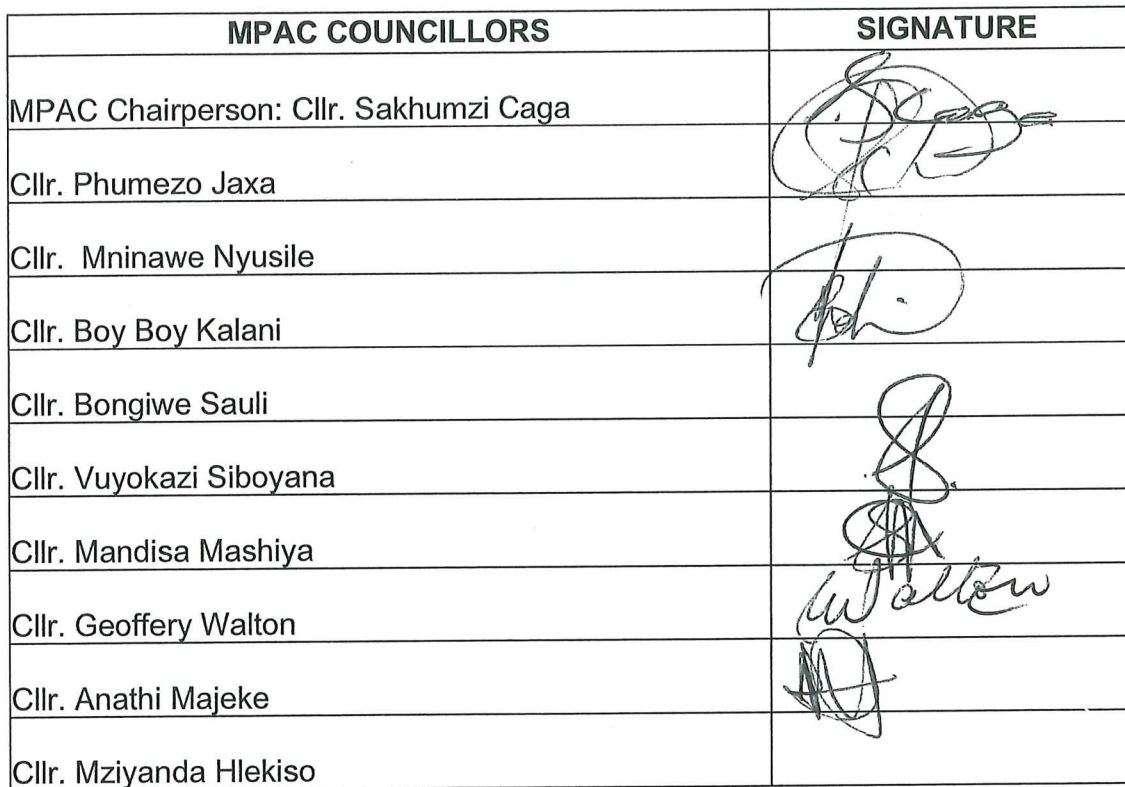 MPAC COUNCILLORS SIGNATURE
MPAC Chairperson: Cllr. Sakhumzi Caga
Cllr. Phumezo Jaxa
Cllr. Mninawe Nyusile
Cllr. Boy Boy Kalani
Cllr. Bongiwe Sauli
Cllr. Vuyokazi Siboyana
Cllr. Mandisa Mashiya
Cllr. Geoffery Walton Walton
Cllr. Anathi Majeke
Cllr. Mziyanda Hlekiso